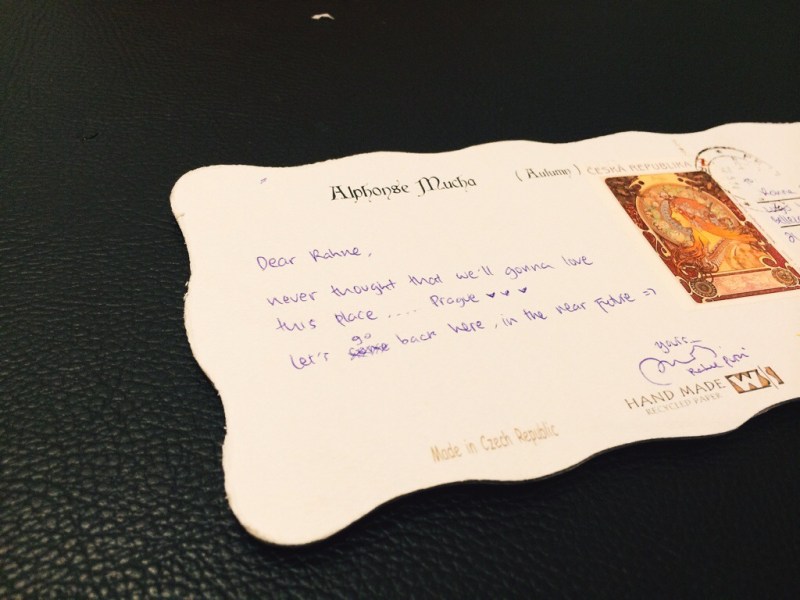 Alphonse Mucha
(Autumn)
ČESKÁ REPUBLIKA
Dear Rahne,
never thought that we'll gonna love
this place .... Prague ♥ ♥ ♥
go
Let's back here, in the near future =)
yours_
HAND MADE
RECYCLED PAPER
Made in Czech Republic